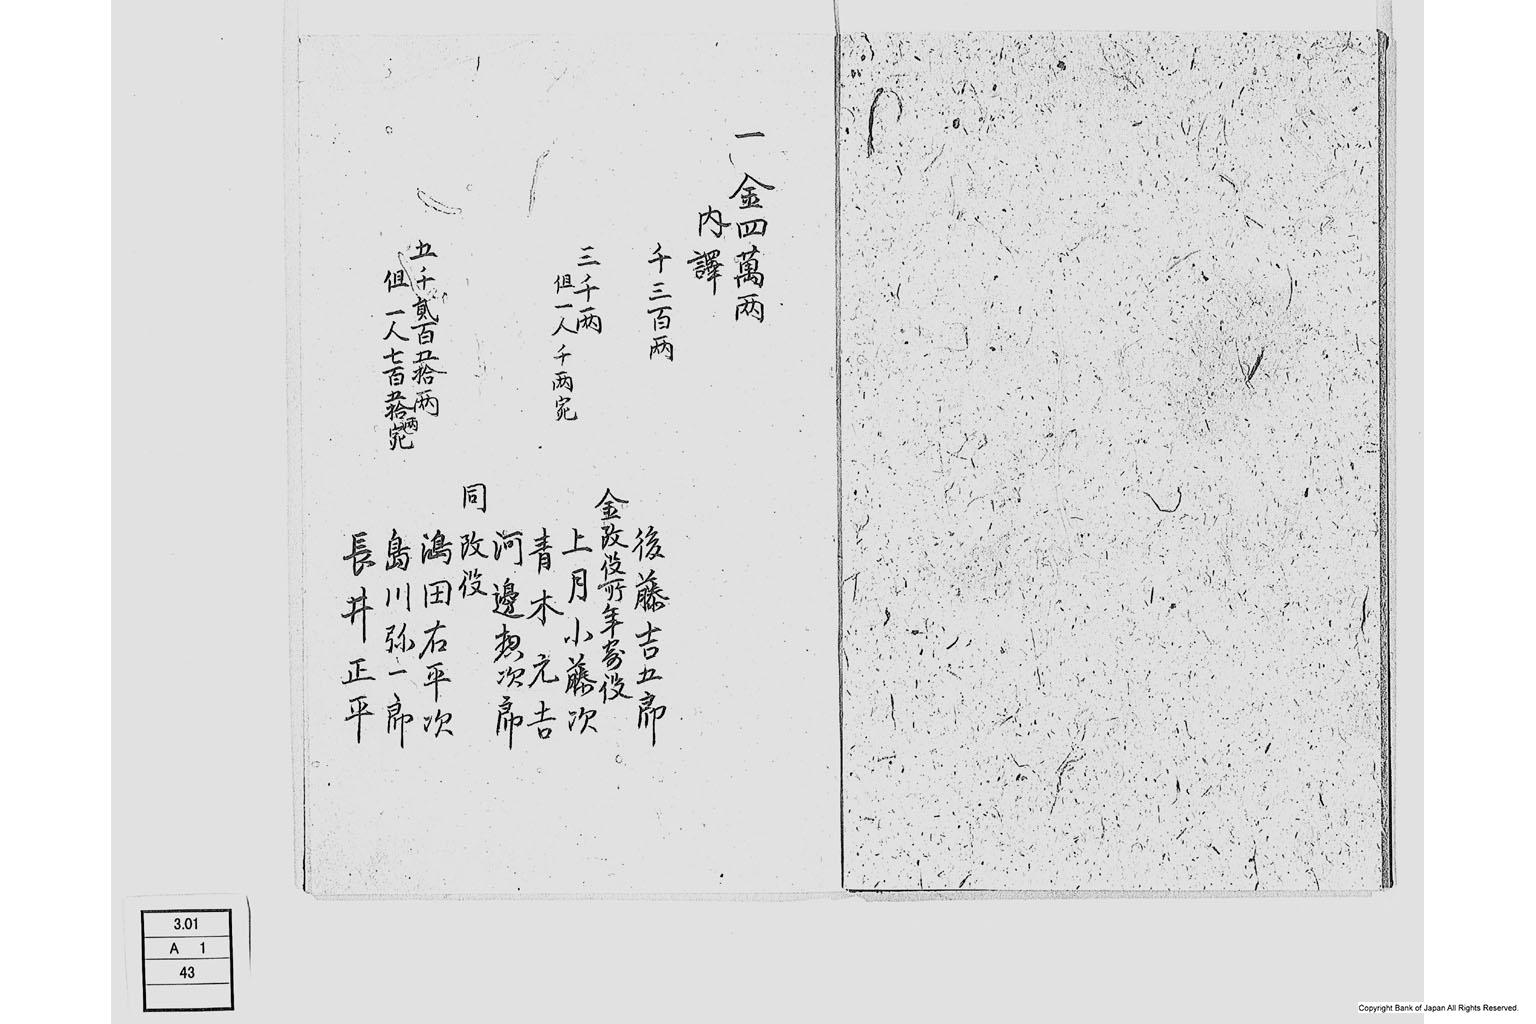 一 金四萬両
内譯
千三百両
後藤吉五郎
金改役所年寄役
三千両
但一人千両宛
上月小藤次
青木元吉
河邊惣次郎
同
改役
五千貳百五拾両
但一人七百五拾両宛
鴻田右平次
島川弥一郎
長井正平
3.01
A 1
43
Copyright Bank of Japan All Rights Reserved.